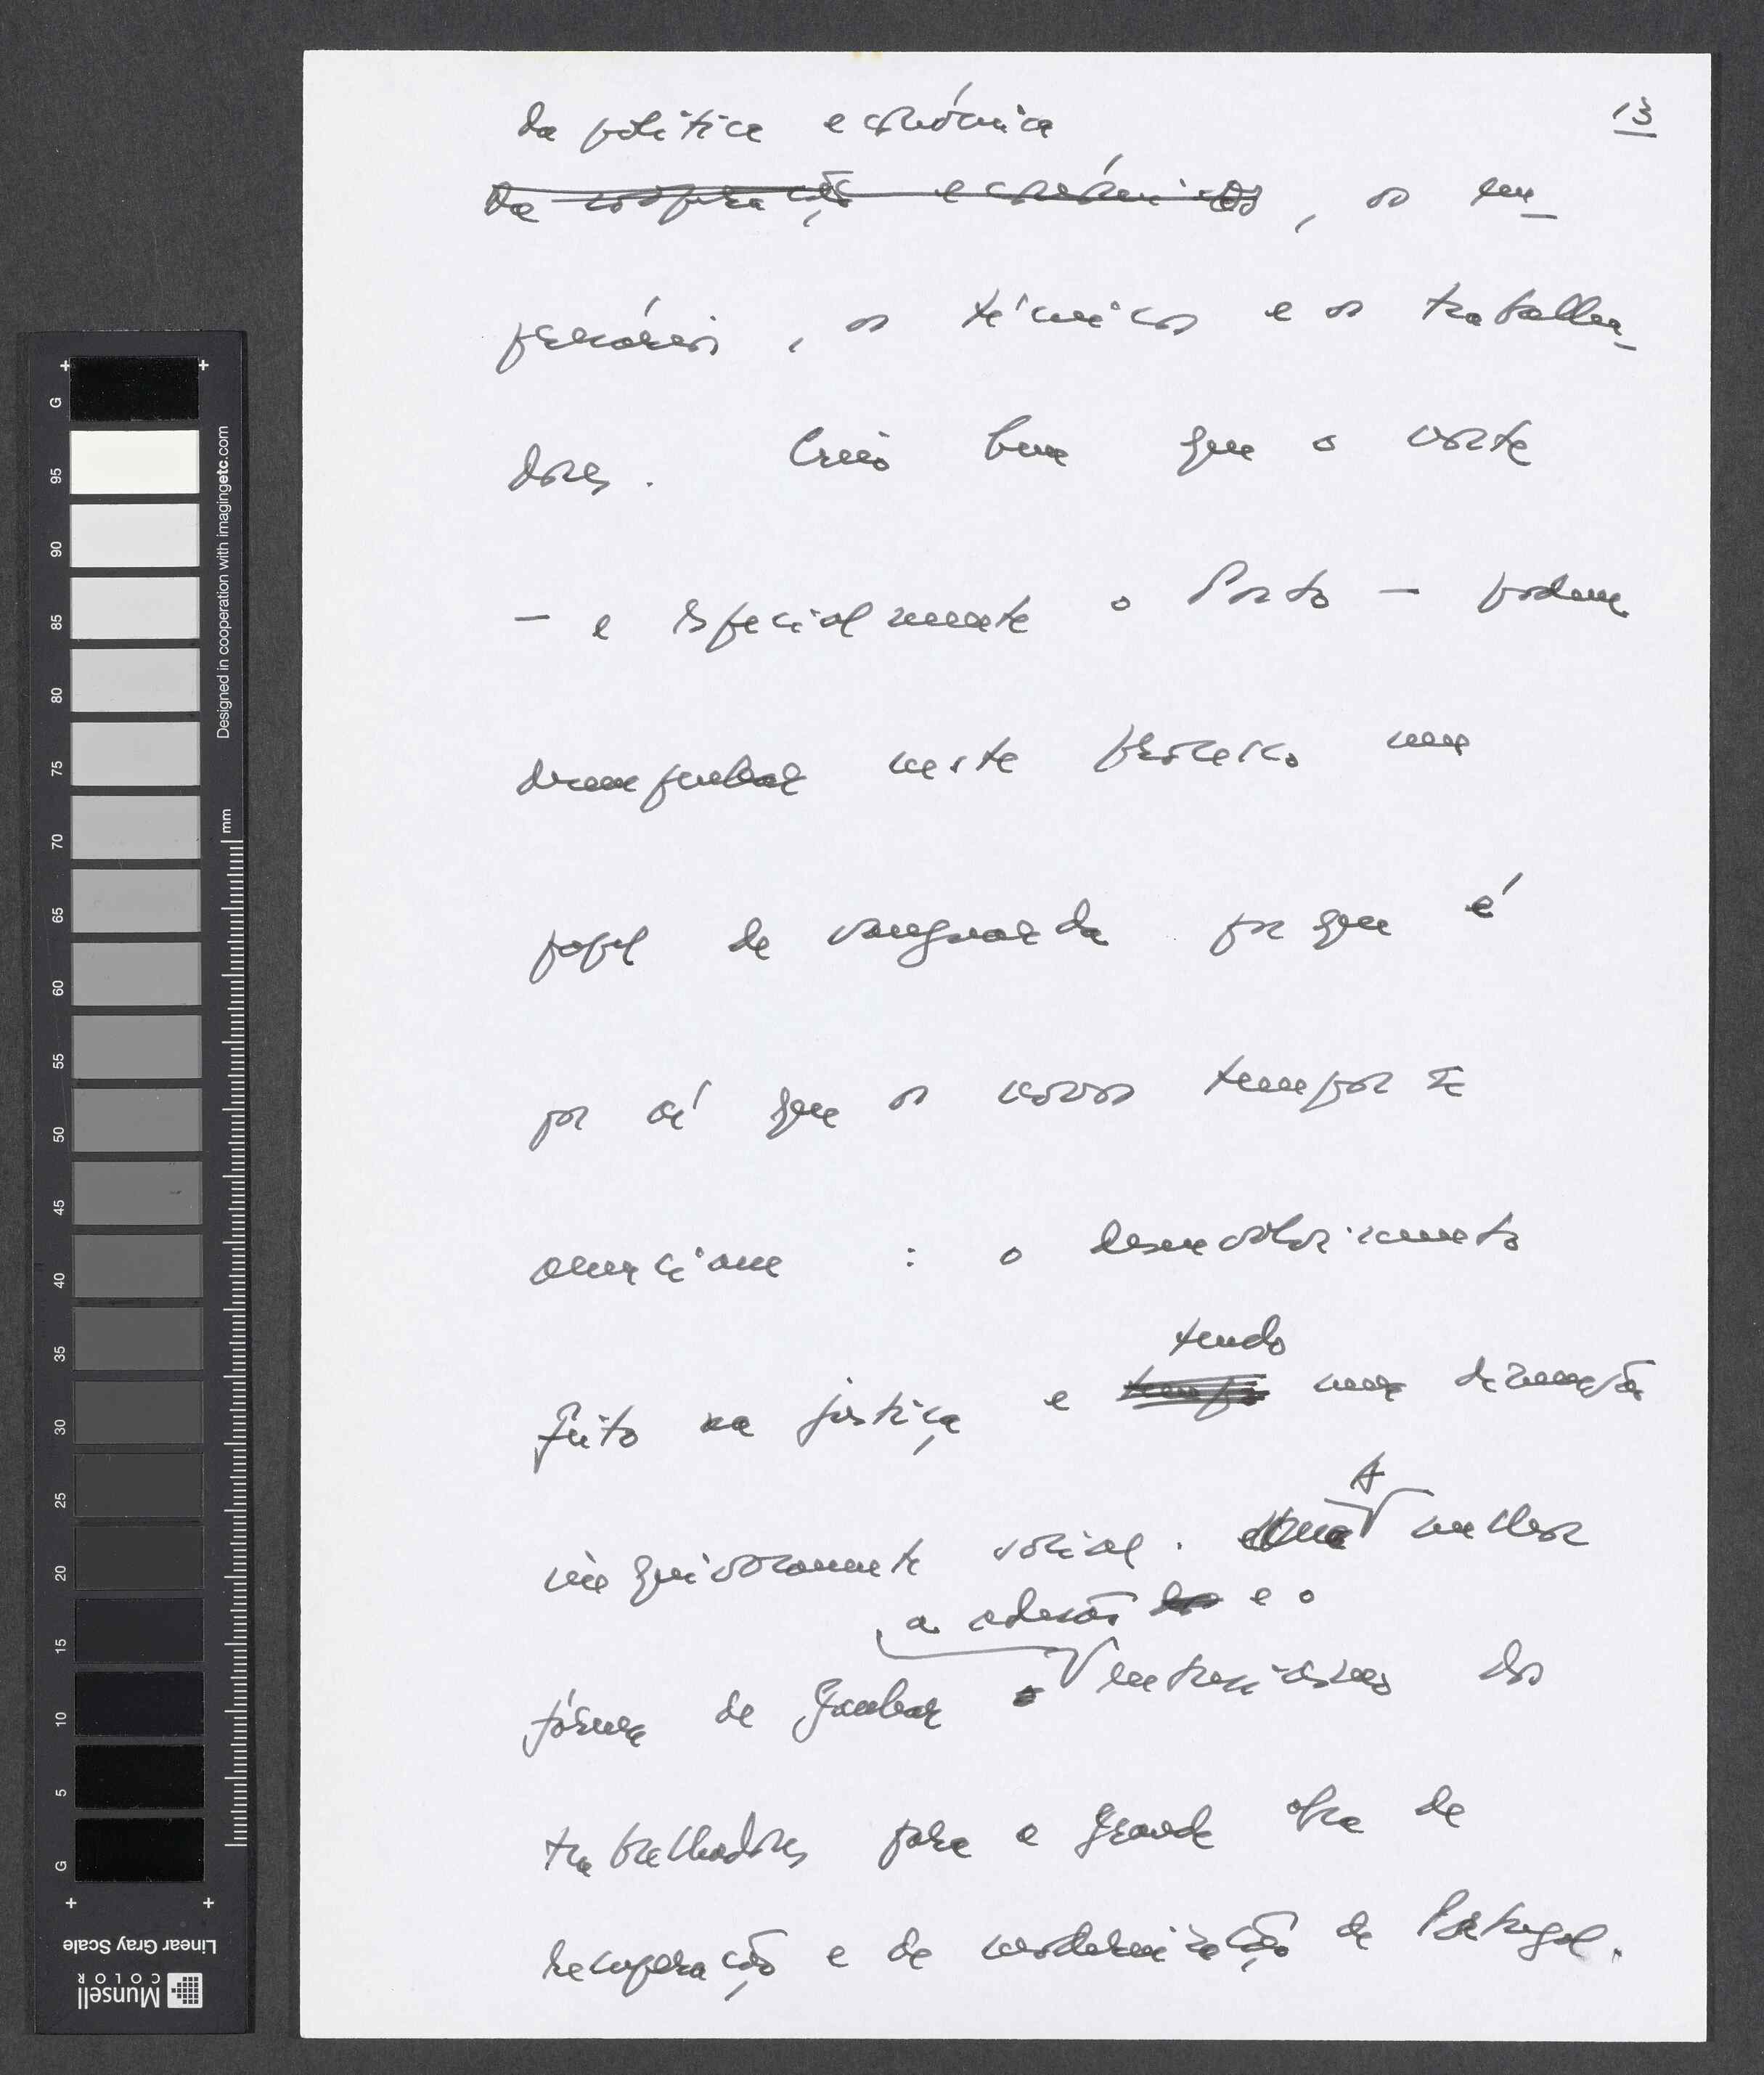 13
da política económica
da cooperação económica, os em_
presários, os técnicos e os trabalha_
dores. Creio bem que o norte
— e especialmente o Porto — podem
desempenhar neste processo um
papel de vanguarda porque é
por aí que os novos tempos se
anunciam : o desenvolvimento
tendo
feito na justiça e uma dimensão
A
inequivocamente social. melhor
a adesão e o
forma de ganhar o entusiasmo dos
trabalhadores para a grande obra de
recuperação e de modernização de Portugal.
G
95
90
85
80
75
70
65
60
55
50
45
40
35
30
25
20
15
10
5
G
mm
Designed in cooperation with imagingetc.com
Linear Gray Scale
Munsell
COLOR